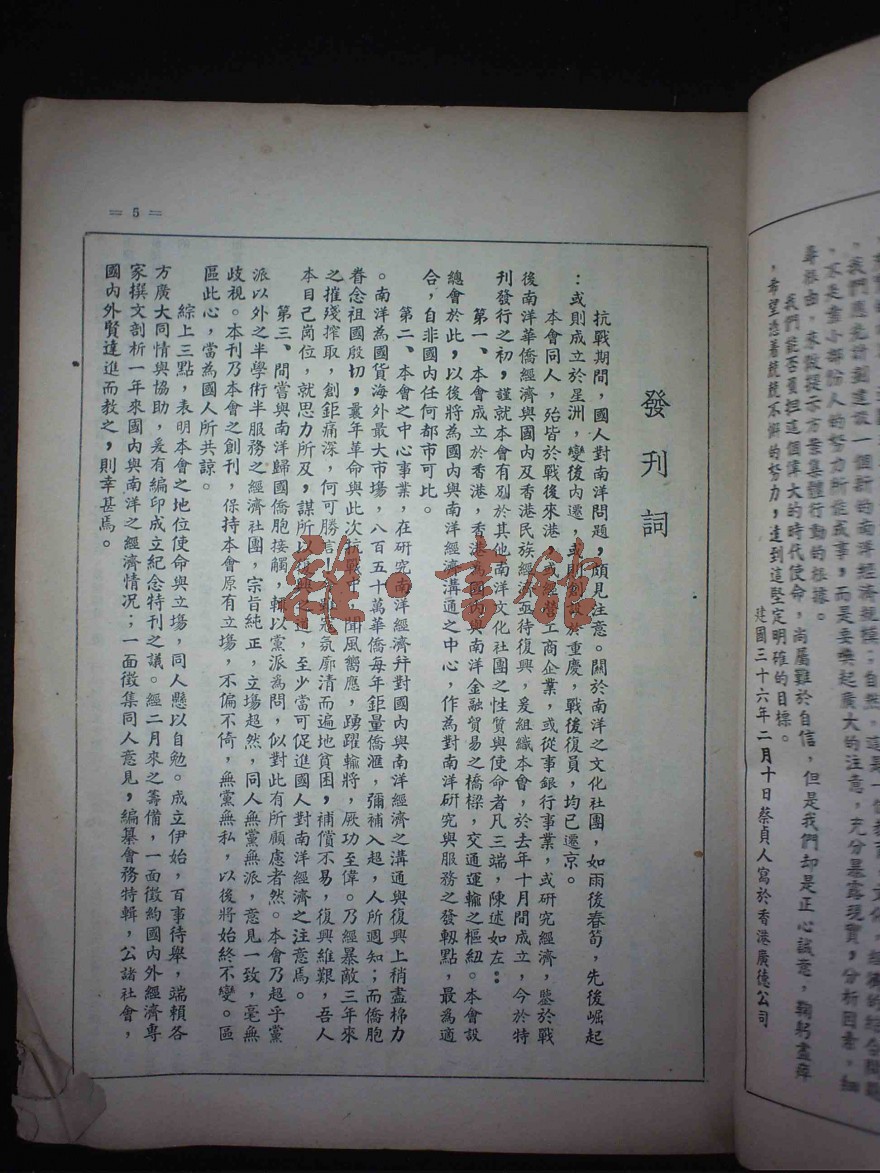 ，我們應先計劃建設一個新的南洋經濟規模；自然，這是一
，不是靠小部份人的努力所能成事，而是要喚起廣大的注意，充分暴露現實，分析因素，細
尋根由，來做提示方案集體行動的根據。
我們能否負担這個偉大的時代使命，尚屬難於自信，但是我們却是正心誠意，鞠躬盡瘁
，希望憑着兢兢不懈的努力，達到這堅定明確的目標。
建國三十六年二月十日蔡貞人寫於香港廣德公司
= 5 =
發刊詞
抗戰期間，國人對南洋問題，頗見注意。關於南洋之文化社團，如雨後春筍，先後崛起
：或則成立於星洲，變後內遷，或則創設於重慶，戰後復員，均已遷京。
本會同人，殆皆於戰後來港，或經營工商企業，或從事銀行事業，或研究經濟，鑒於戰
後南洋華僑經濟與國內及香港民族經濟亟待復興，爰組織本會，於去年十月間成立，今於特
刊發行之初，謹就本會有別於其他南洋文化社團之性質與使命者凡三端，陳述如左：
第一、本會成立於香港，香港為國內與南洋金融貿易之橋樑，交通運輸之樞紐。本會設
總會於此，以後將為國內與南洋經濟溝通之中心，作為對南洋研究與服務之發軔點，最為適
合，自非國內任何都市可比。
第二、本會之中心事業，在研究南洋經濟幷對國內與南洋經濟之溝通與復興上稍盡棉力
。南洋為國貨海外最大市場，八百五十萬華僑每年鉅量僑滙，彌補入超，人所週知；而僑胞
眷念祖國殷切，曩年革命與此次抗戰中，聞風嚮應，踴躍輸將，厥功至偉。乃經暴敵三年來
之摧殘搾取，創鉅痛深，何可勝言，寇氛廓清而遍地貧困，補償不易，復興維艱，吾人
本自己崗位，就思力所及，謀所以復興之道，至少當可促進國人對南洋經濟之注意焉。
第三、間嘗與南洋歸國僑胞接觸，輒以黨派為問，似對此有所顧慮者然。本會乃超乎黨
派以外之半學術半服務之經濟社團，宗旨純正，立場超然，同人無黨無派，意見一致，毫無
歧視。本刊乃本會之創刊，保持本會原有立場，不偏不倚，無黨無私，以後將始終不變。區
區此心，當為國人所共諒。
綜上三點，表明本會之地位使命與立場，同人懸以自勉。成立伊始，百事待舉，端賴各
方廣大同情與協助，爰有編印成立紀念特刊之議。經二月來之籌備，一面徵約國內外經濟專
家撰文剖析一年來國內與南洋之經濟情况；一面徵集同人意見，編纂會務特輯，公諸社會，
國內外賢達進而教之，則幸甚焉。
雜·書館